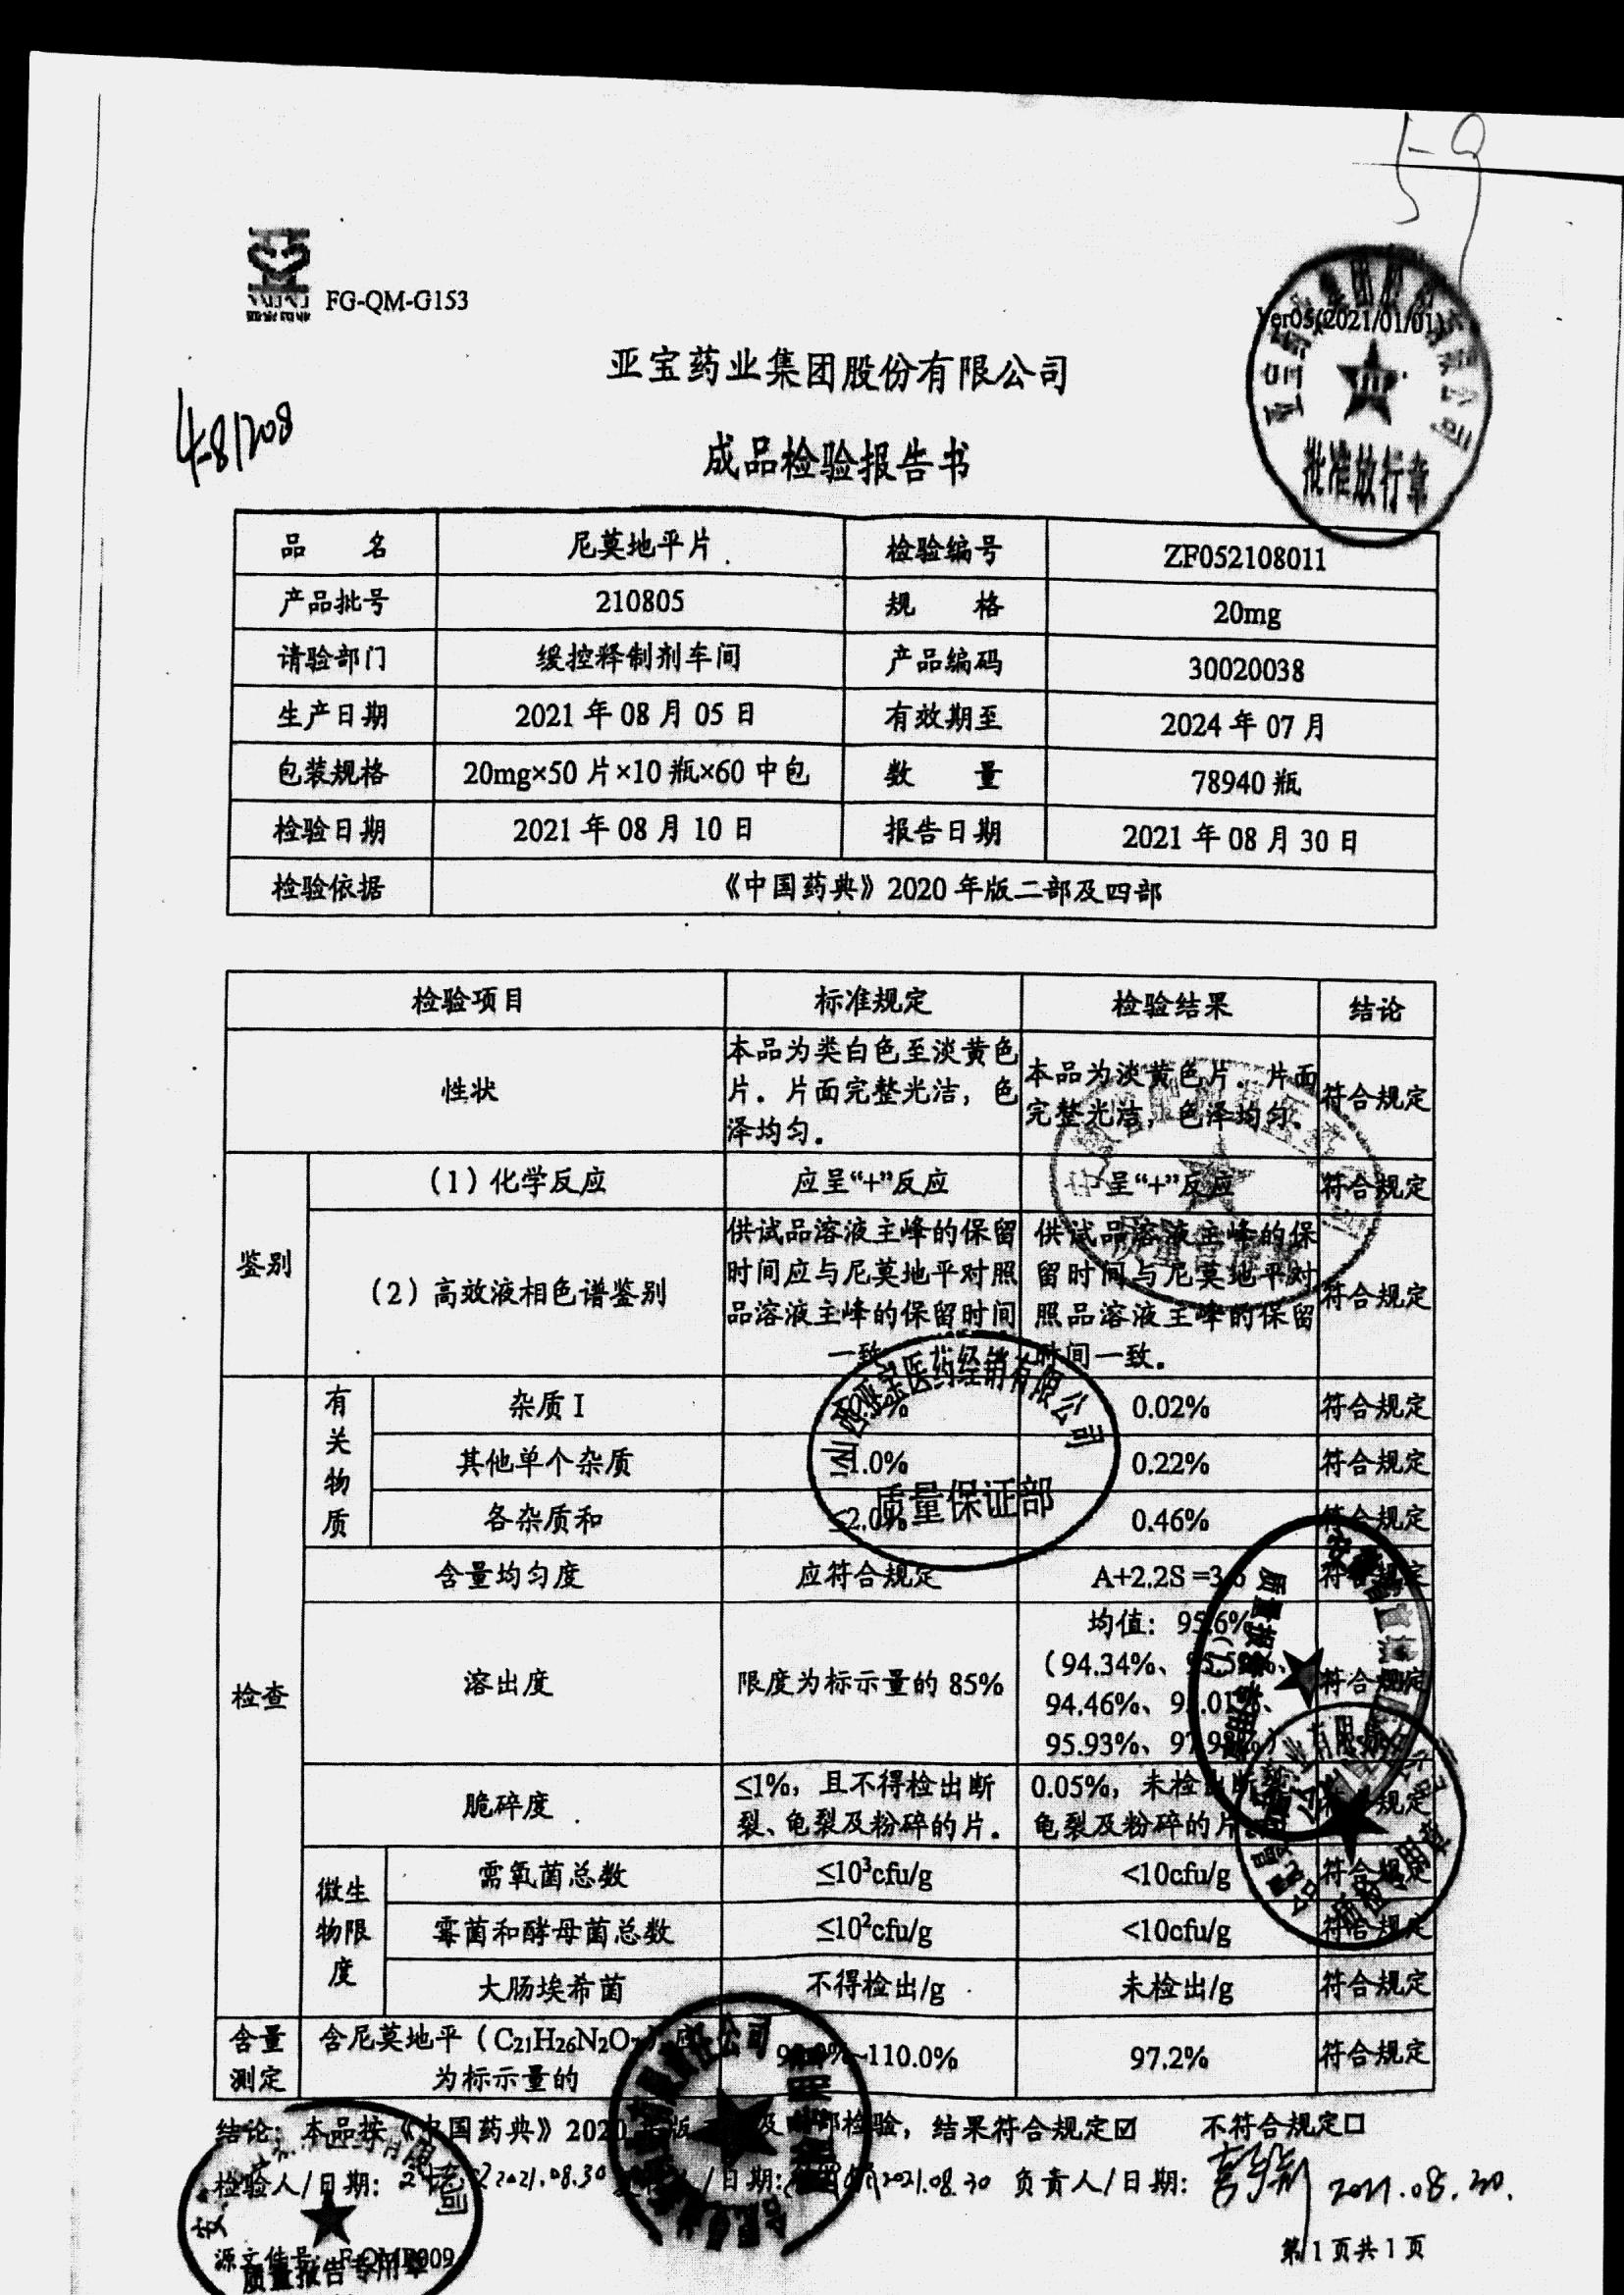 5-9
FG-QM-G153
Ver05(2021/01/01)
批准放行章
亚宝药业集团股份有限公司
4-81208
成品检验报告书
品 名 尼莫地平片 检验编号 ZF052108011
产品批号 210805 规 格 20mg
请验部门 缓控释制剂车间 产品编码 30020038
生产日期 2021 年 08 月 05 日 有效期至 2024 年 07 月
包装规格 20mg×50 片×10 瓶×60 中包 数 量 78940 瓶
检验日期 2021 年 08 月 10 日 报告日期 2021 年 08 月 30 日
检验依据 《中国药典》2020 年版二部及四部
检验项目 标准规定 检验结果 结论
性状 本品为类白色至淡黄色片。片面完整光洁，色泽均匀。 本品为淡黄色片。片面完整光洁，色泽均匀。 符合规定
鉴别 （1）化学反应 应呈“+”反应 呈“+”反应 符合规定
（2）高效液相色谱鉴别 供试品溶液主峰的保留时间应与尼莫地平对照品溶液主峰的保留时间一致 供试品溶液主峰的保留时间与尼莫地平对照品溶液主峰的保留时间一致。 符合规定
检查 有关物质 杂质 I 0.02% 符合规定
其他单个杂质 1.0% 0.22% 符合规定
各杂质和 ≤2.0% 0.46% 符合规定
山西亚宝医药经销有限公司
质量保证部
含量均匀度 应符合规定 A+2.2S = 符合规定
溶出度 限度为标示量的 85% 均值：95.6% （94.34%、 94.46%、 95.93%、 符合规定
脆碎度 ≤1%，且不得检出断裂、龟裂及粉碎的片。 0.05%，未检出断裂、龟裂及粉碎的片 规定
微生物限度 需氧菌总数 ≤10³cfu/g <10cfu/g 符合规定
霉菌和酵母菌总数 ≤10²cfu/g <10cfu/g 符合规定
大肠埃希菌 不得检出/g 未检出/g 符合规定
含量测定 含尼莫地平（C₂₁H₂₆N₂O₇）应为标示量的 110.0% 97.2% 符合规定
结论：本品按《中国药典》2020 年版 及 部检验，结果符合规定☑ 不符合规定☐
检验人/日期： 2021.08.30 /日期： 2021.08.30 负责人/日期： 2021.08.30.
源文件号：
质量报告专用章
第 1 页共 1 页